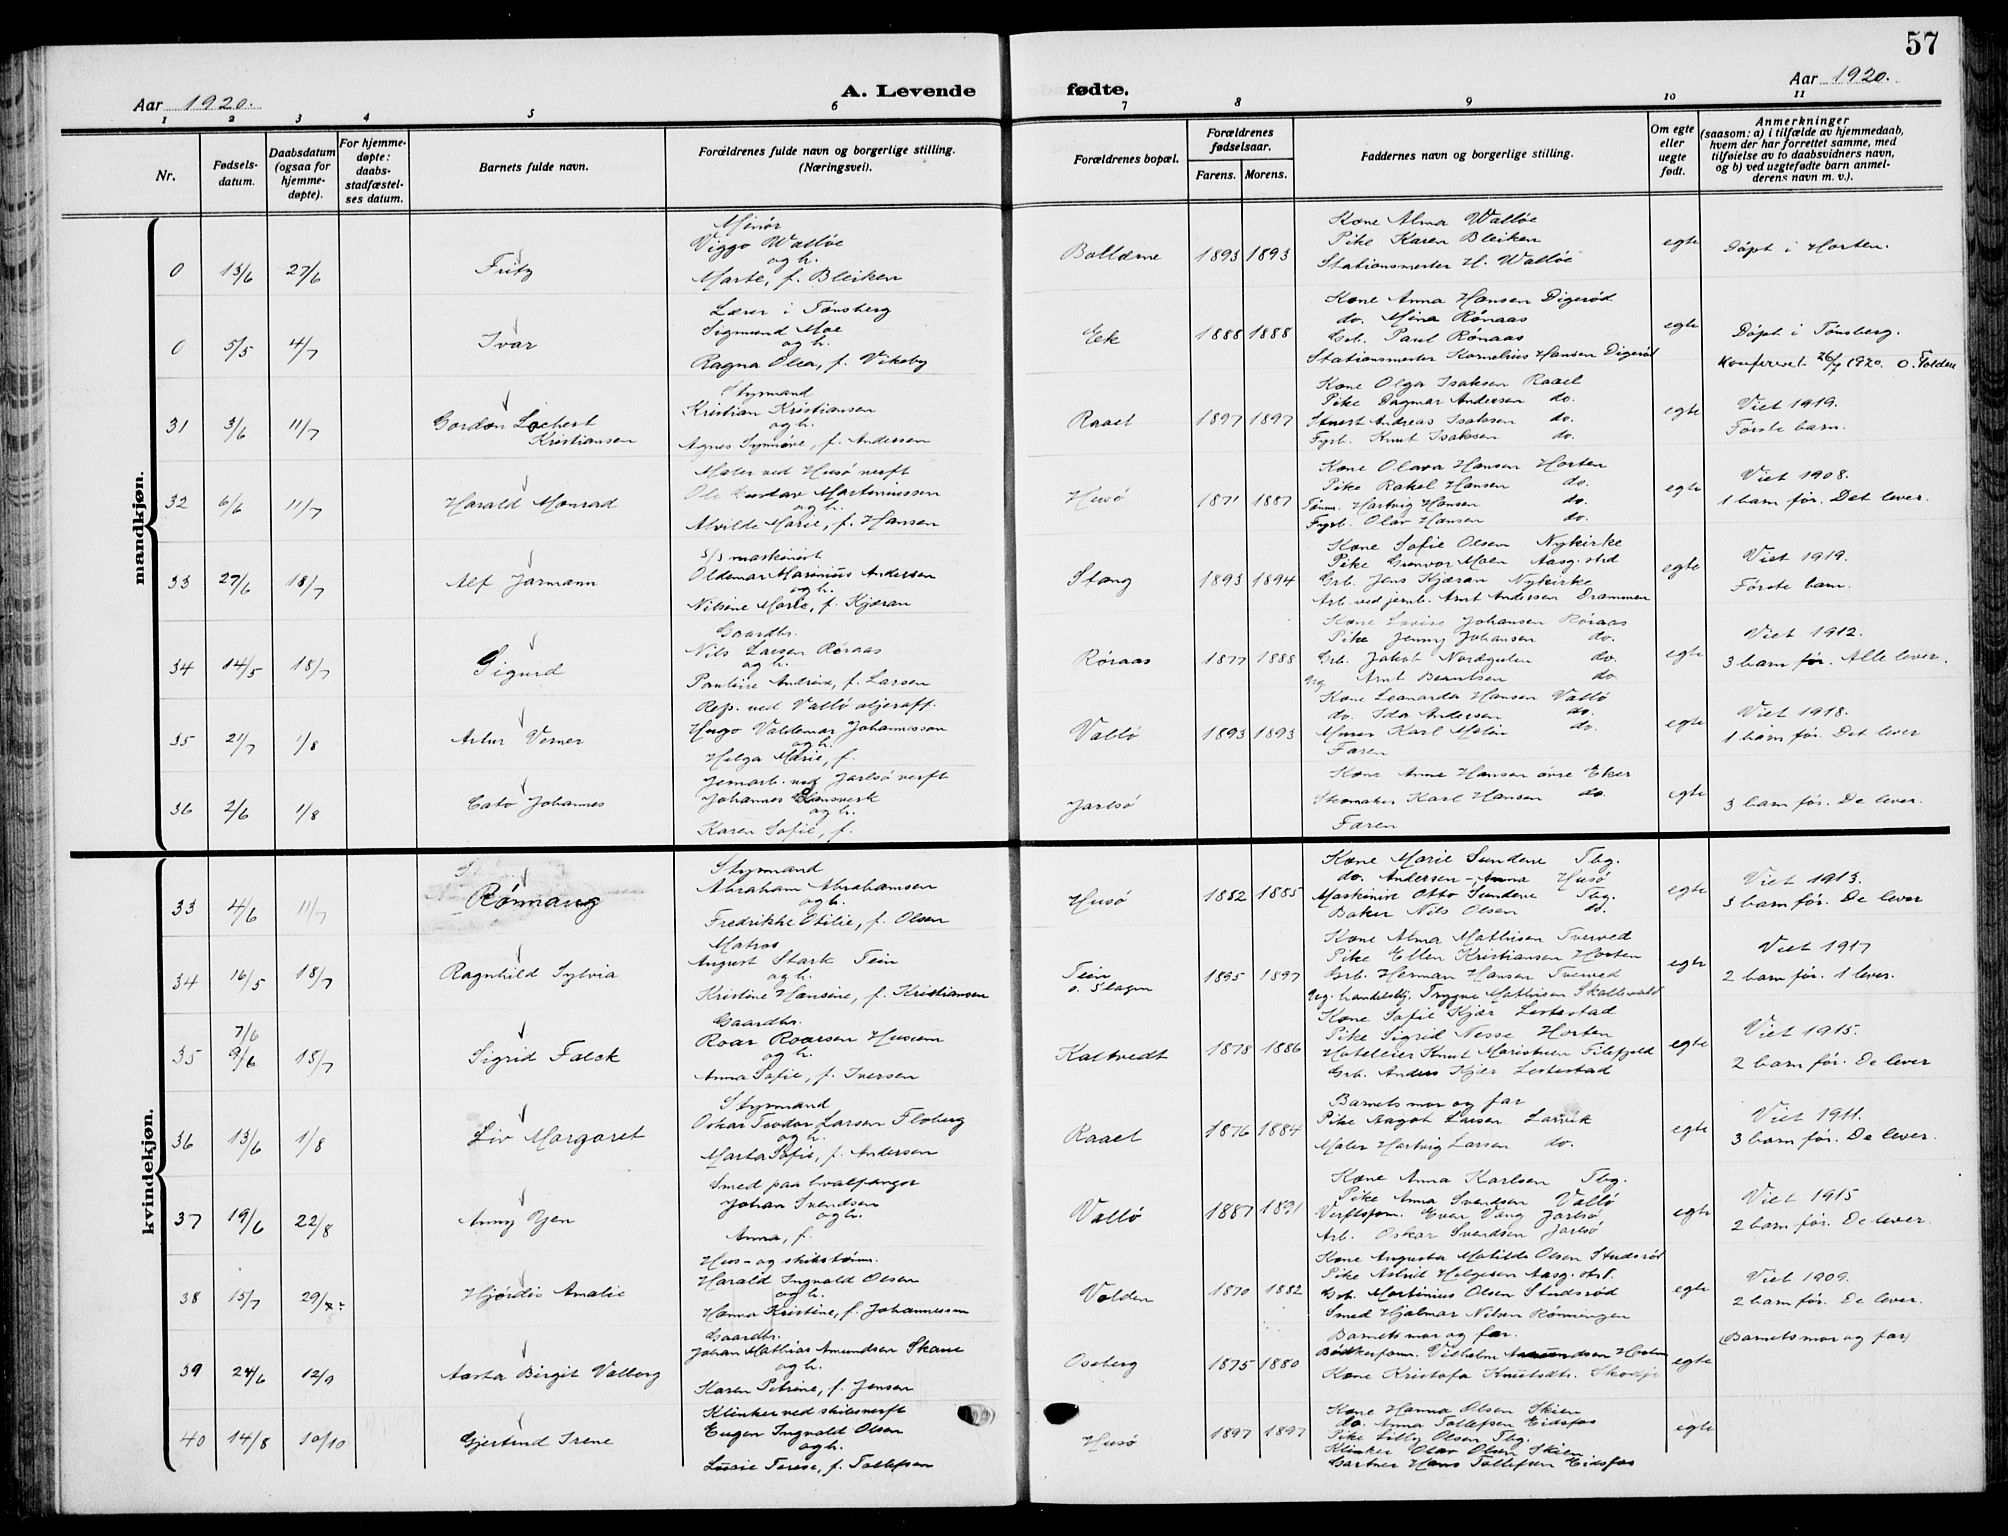 57
Aar 1920.
A. Levende
fødte.
Aar 1920.
1 2 3 4 5 6 7 8 9 10 11
Nr.
Fødsels-
datum.
Daabsdatum
(ogsaa for
hjemme-
døpte).
For hjemme-
døpte:
daabs-
stadfæstel-
ses datum.
Barnets fulde navn.
Forældrenes fulde navn og borgerlige stilling.
(Næringsvei).
Forældrenes bopæl.
Forældrenes
fødselsaar.
Farens. Morens.
Faddernes navn og borgerlig stilling.
Om egte
eller
uegte
født.
Anmerkninger
(saasom: a) i tilfælde av hjemmedaab,
hvem der har forrettet samme, med
tilføielse av to daabsvidners navn,
og b) ved uegtefødte barn anmel-
derens navn m. v.).
mandkjøn.
0 13/6 27/6 Fritz
Minør
Viggo Walløe
og h.
Marte, f. Bleiken
Bolærne 1893 1893
Kone Alma Walløe
Pike Karen Bleiken
Stationsmester H. Walløe
egte
Døpt i Horten.
0 5/5 4/7 Ivar
Lærer i Tønsberg
Sigmund Moe
og h.
Ragna Olea, f. Vikeby
Eek 1888 1888
Kone Anna Hansen Digerød
do. Mina Rønaas
Grb. Paul Rønaas
Stationsmester Kornelius Hansen Digerød
egte
Døpt i Tønsberg.
Konferert 26/7 1920. O. Folden
31 3/6 11/7 Gordon Lochert
Kristiansen
Styrmand
Kristian Kristiansen
og h.
Agnes Synnøve, f. Andersen
Raael 1897 1897
Kone Olga Isaksen Raael
Pike Dagmar Andersen do.
Stuert Andreas Isaksen do.
Fyrb. Knut Isaksen do.
egte
Viet 1919.
Første barn.
32 6/6 11/7 Harald Monrad
Maler ved Husø verft
Ole Gustav Martiniussen
og h.
Alvilde Marie, f. Hansen
Husø 1871 1887
Kone Olava Hansen Horten
Pike Rakel Hansen do.
Tømm. Hartvig Hansen do.
Fyrb. Olav Hansen do.
egte
Viet 1908.
1 barn før. Det lever.
33 27/6 18/7 Alf Jarmann
S/S maskinist
Oldemar Marinius Andersen
og h.
Nilsine Marie, f. Kjæran
Stang 1893 1894
Kone Sofie Olsen Nykirke
Pike Gunvor Moen Aasg.strd
Grb. Jens Kjæran Nykirke
Arb. ved jernb. Arnt Andersen Drammen
egte
Viet 1919.
Første barn.
34 14/5 18/7 Sigurd
Gaardbr.
Nils Larsen Røraas
og h.
Pauline Andrine, f. Larsen
Røraas 1877 1888
Kone Lovise Johansen Røraas
Pike Jenny Johansen do.
Grb. Jakob Nordgulen do.
Ug. Arnt Berntsen do.
egte
Viet 1912.
3 barn før. Alle lever.
35 21/7 1/8 Artur Verner
Rep. ved Vallø oljeraff.
Hugo Valdemar Johannisson
og h.
Helga Marie, f.
Vallø 1893 1893
Kone Leonarda Hansen Vallø
do. Ida Andersen do.
Murer Karl Malin do.
Faren
egte
Viet 1918.
1 barn før. Det lever
36 2/6 1/8 Cato Johannes
Jernarb. ved Jarlsø verft
Johannes
og h.
Karen Sofie, f.
Jarlsø
Kone Anne Hansen øvre Eker
Skomaker Karl Hansen do.
Faren
egte
3 barn før. De lever.
kvindekjøn.
33 4/6 11/7 Rønnaug
Styrmand
Abraham Abrahamsen
og h.
Fredrikke Otilie, f. Olsen
Husø 1882 1885
Kone Marie Sundene Tbg.
do. Andersen - Anna Husø
Maskinist Otto Sundene Tbg.
Baker Nils Olsen do.
egte
Viet 1913.
3 barn før. De lever
34 16/5 18/7 Ragnhild Sylvia
Matros
August Stark Tein
og h.
Kristine Hansine, f. Kristiansen
Tein
o. Slagen
1895 1897
Kone Alma Mathisen Tverved
Pike Ellen Kristiansen Horten
Grb. Herman Hansen Tverved
Ug. handelsbtj. Trygve Mathisen Skallevold
egte
Viet 1917
2 barn før. 1 lever.
35 7/6
9/6 18/7 Sigrid Falck
Gaardbr.
Roar Roarsen Huseum
og h.
Anna Sofie, f. Iversen
Kaltvedt 1878 1886
Kone Sofie Kjær Lestestad
Pike Sigrid Nesse Horten
Hoteleier Knut Maristuen Filefjeld
Grb. Anders Kjær Lestestad
egte
Viet 1915.
2 barn før. De lever
36 13/6 1/8 Liv Margaret
Styrmand
Oskar Teodor Larsen Floberg
og h.
Marta Sofie, f. Andersen
Raael 1876 1884
Barnets mor og far
Pike Aagot Larsen Larvik
Maler Hartvig Larsen do.
egte
Viet 1911.
3 barn før. De lever.
37 19/6 22/8 Anny Yen
Smed paa hvalfanger
Johan Svendsen
og h.
Anna, f.
Vallø 1887 1891
Kone Anna Karlsen Tbg.
Pike Anna Svendsen Vallø
Verftsfom. Even Vang Jarlsø
Arb. Oskar Svendsen Jarlsø
egte
Viet 1915
2 barn før. De lever.
38 15/7 29/8 Hjørdis Amalie
Hus- og skibstømm.
Harald Ingvald Olsen
og h.
Hanna Kristine, f. Johannessen
Volden 1870 1882
Kone Augusta Matilde Olsen Studsrød
Pike Astrid Helgesen Aasg.strd.
Grb. Martinius Olsen Studsrød
Smed Hjalmar Nilsen Rønningen
egte
Viet 1909.
2 barn før. De lever.
39 24/6 12/9 Aasta Birgit Valborg
Gaardbr.
Johan Mathias Amundsen Skaue
og h.
Karen Petrine, f. Jensen
Oseberg 1875 1880
Barnets mor og far.
Bødkerfom. Vilhelm Amundsen Horten
Kone Kristofa Knutsdtr.
egte
(Barnets mor og far)
40 14/8 10/10 Gjertrud Irene
Klinker ved skibsverft
Eugen Ingvald Olsen
og h.
Lucie Terese, f. Tollefsen
Husø 1897 1897
Kone Hanna Olsen Skien
do. Anna Tollefsen Eidsfos
Pike Lilly Olsen Tbg.
Klinker Olav Olsen Skien
Gartner Hans Tollefsen Eidsfos
egte